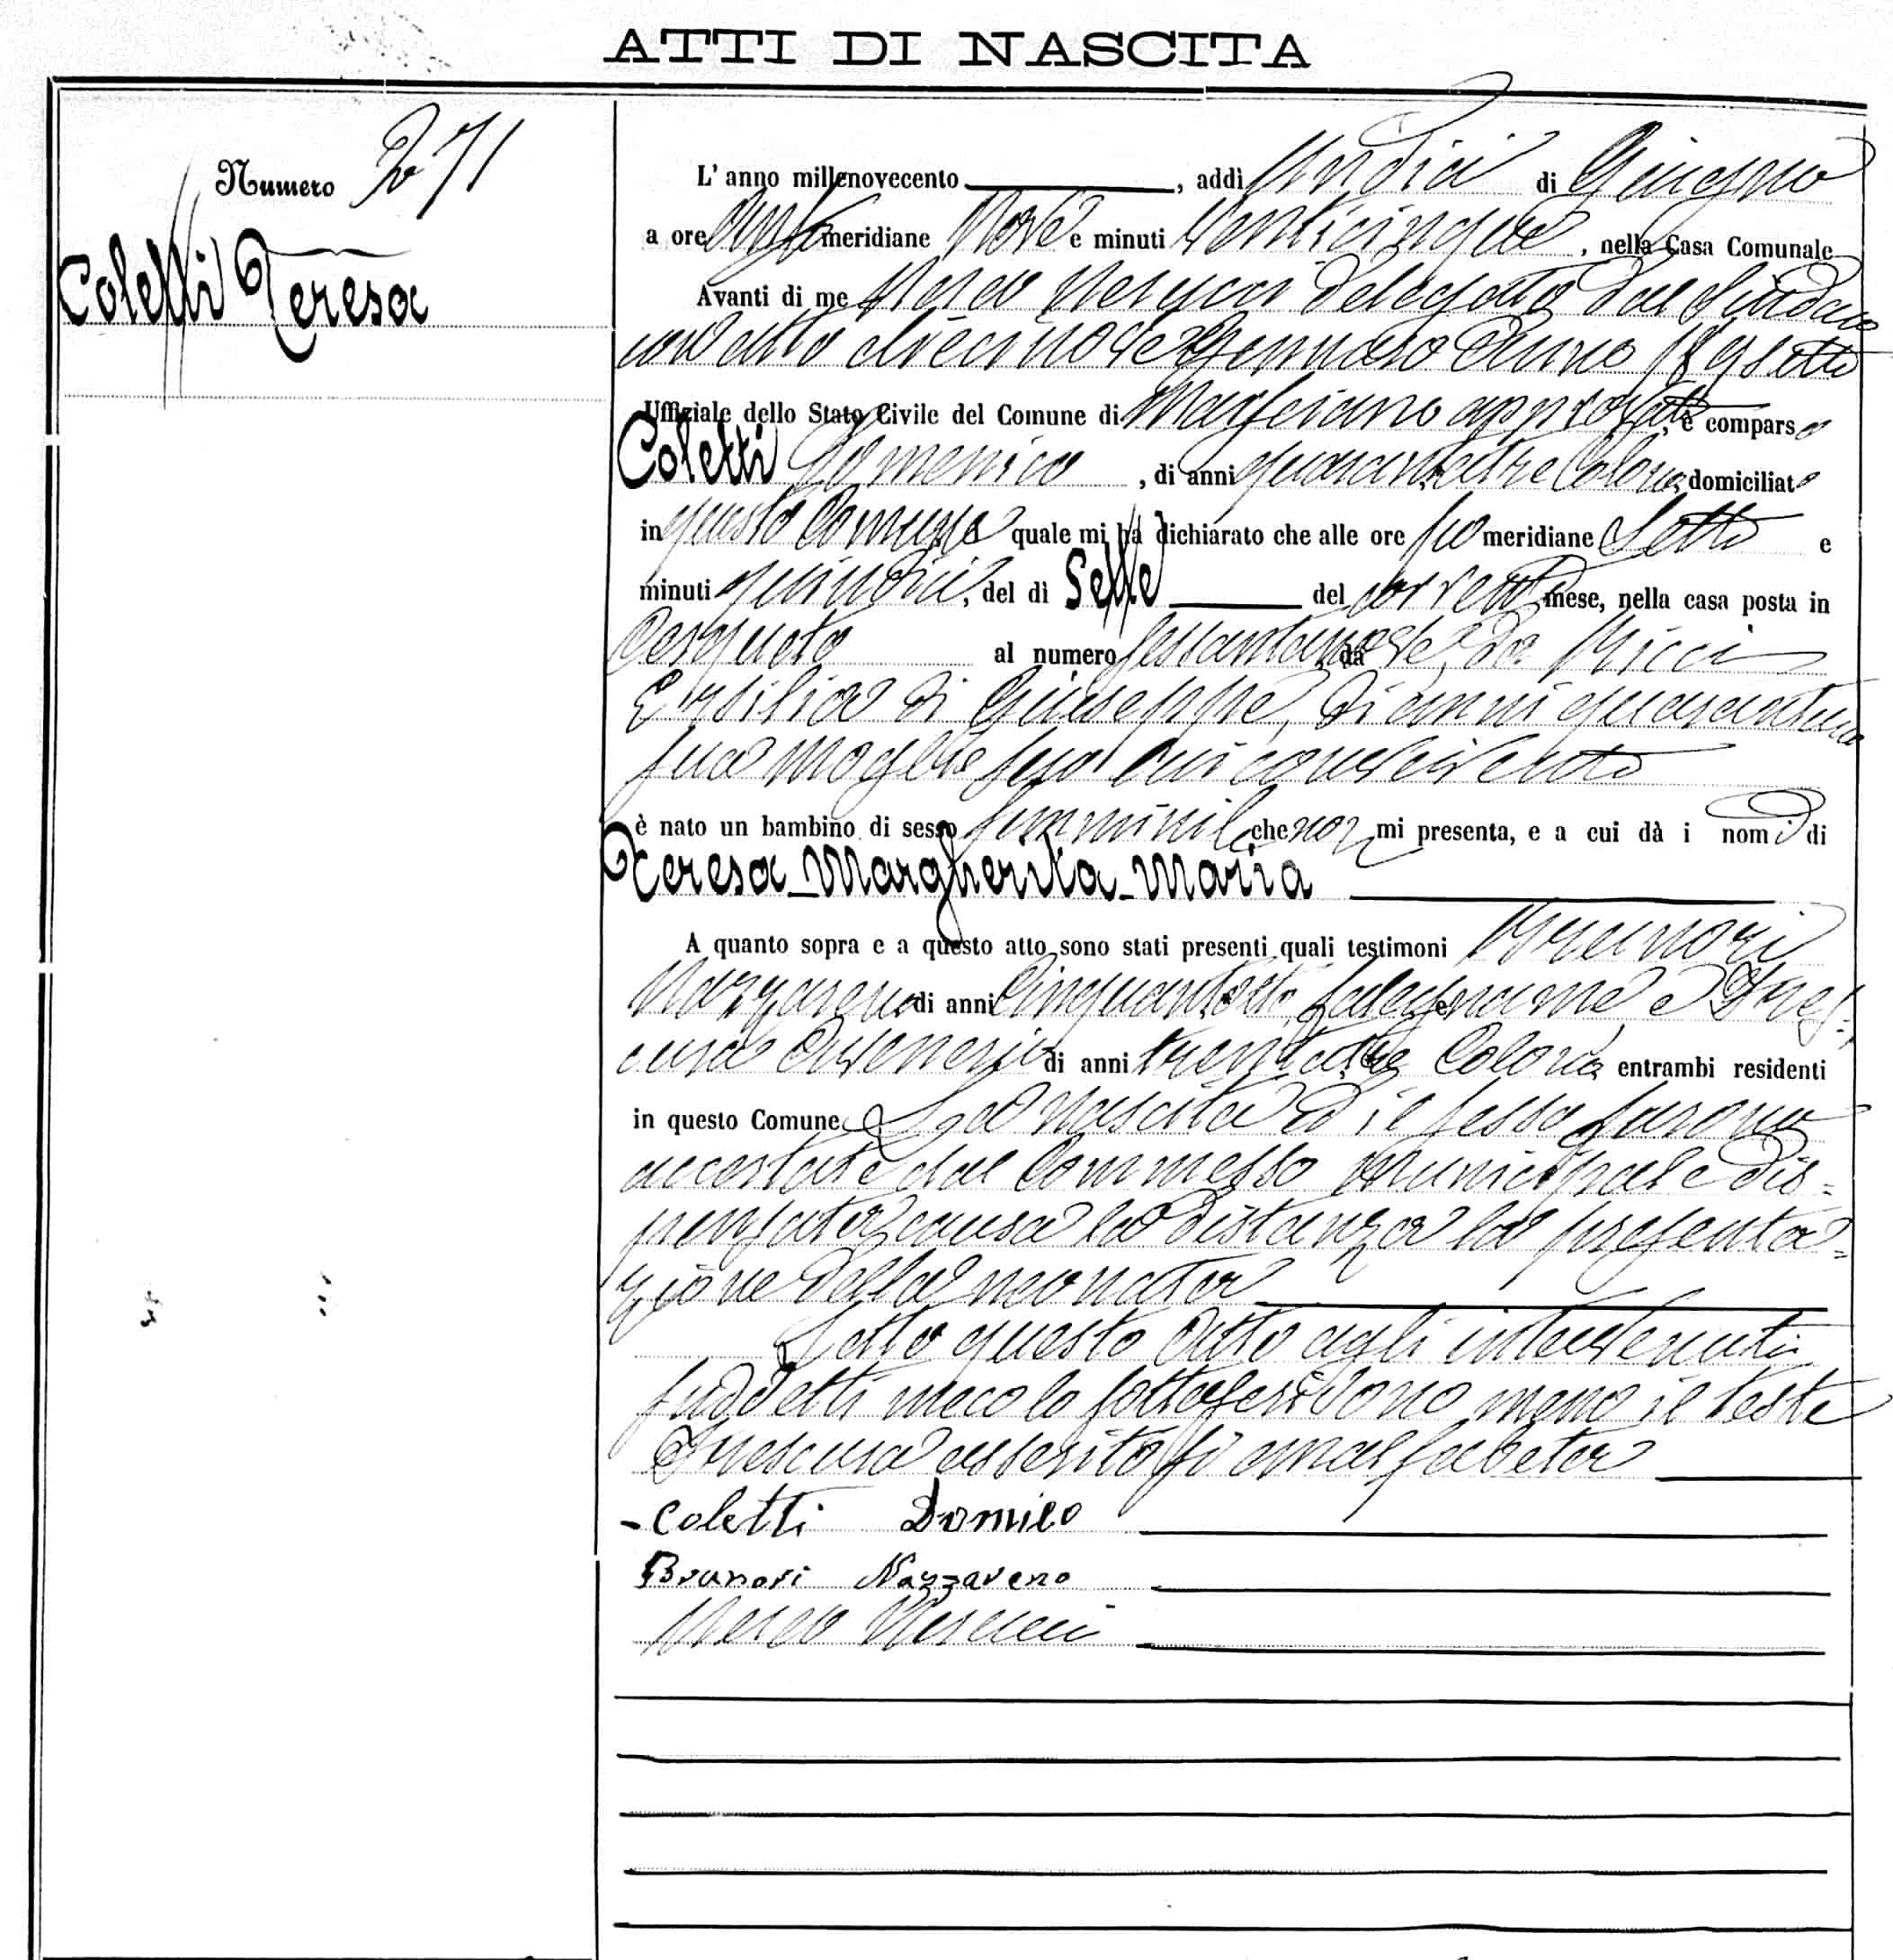 ATTI DI NASCITA
Numero 271
Coletti Teresa
L' anno millenovecento, addì Undici di Giugno
a ore Ante meridiane Nove e minuti venticinque, nella Casa Comunale
Avanti di me Nereo Nerucci delegato dal Sindaco
con atto diecinove Gennaio Anno
Ufficiale dello Stato Civile del Comune di Marsciano approvato, è comparso
Coletti Domenico, di anni quarantatre Colono, domiciliato
in questo Comune quale mi ha dichiarato che alle ore po meridiane Sette e
minuti quindici, del dì Sette del corrente mese, nella casa posta in
Cerqueto al numero sessantanove, da Ricci
Ersilia di Giuseppe, di anni quarantuno
sua moglie seco lui convivente
è nato un bambino di sesso femminile che non mi presenta, e a cui dà i nomi di
Teresa - Margherita - Maria
A quanto sopra e a questo atto sono stati presenti quali testimoni Brunori
Nazzareno di anni cinquantotto, falegname e Fres=
cura di anni trentatre Colono, entrambi residenti
in questo Comune. La nascita ed il sesso furono
accertate dal Commesso Municipale dis=
pensata causa la distanza la presenta=
zione della neonata
Letto questo atto agli intervenuti
suddetti meco lo sottoscrivono meno il teste
Frescura asseritosi analfabeta
- Coletti Domico
Brunori Nazzareno
Nereo Nerucci